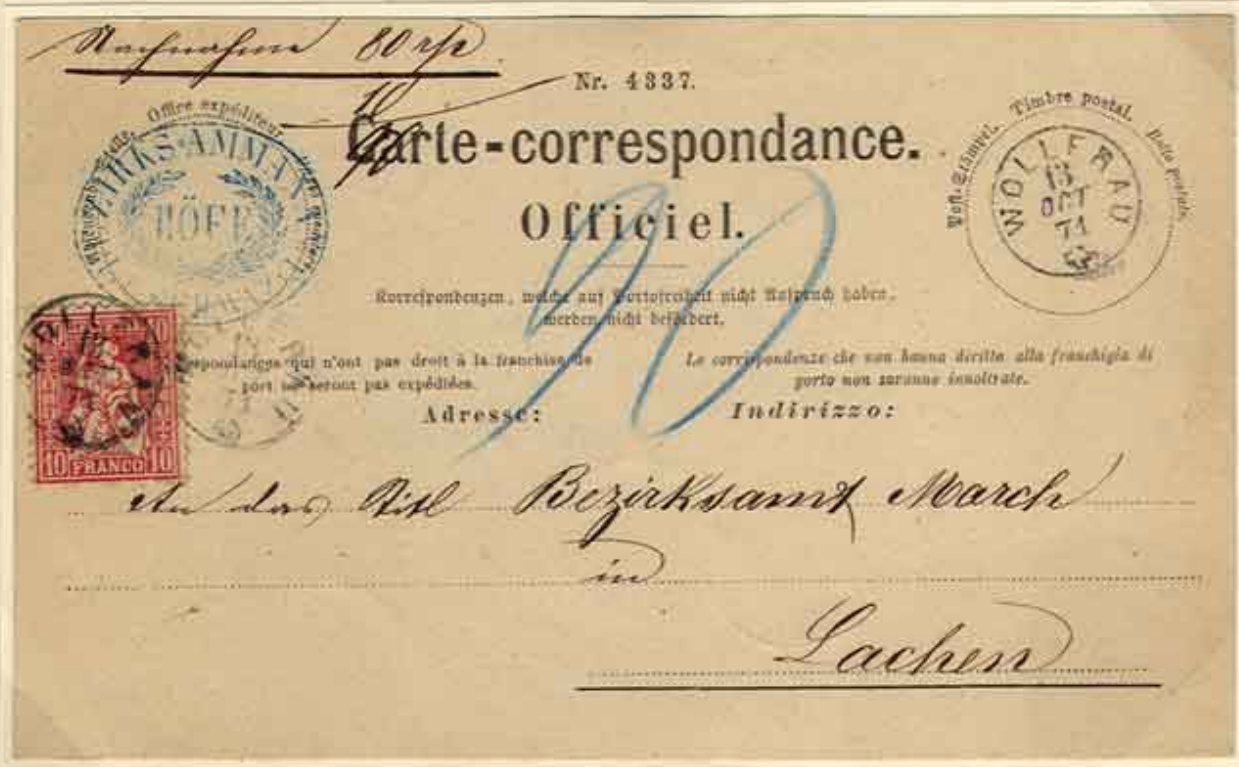 Nachnahme 80 rp
10
Nr. 4337.
Carte-correspondance.
Officiel.
Office expéditeur
BEZIRKS-AMMANN
HÖFE
SCHWYZ
Post-Stämpel. Timbre postal. Bollo postale.
WOLLERAU
13
OCT
71
90
Korrespondenzen, welche auf Portofreiheit nicht Anspruch haben,
werden nicht befördert.
Correspondances qui n'ont pas droit à la franchise de
port ne seront pas expédiées.
Le corrispondenze che non hanno diritto alla franchigia di
porto non saranno innoltrate.
Adresse:
Indirizzo:
10 FRANCO 10
An das Titl Bezirksamt March
in
Lachen